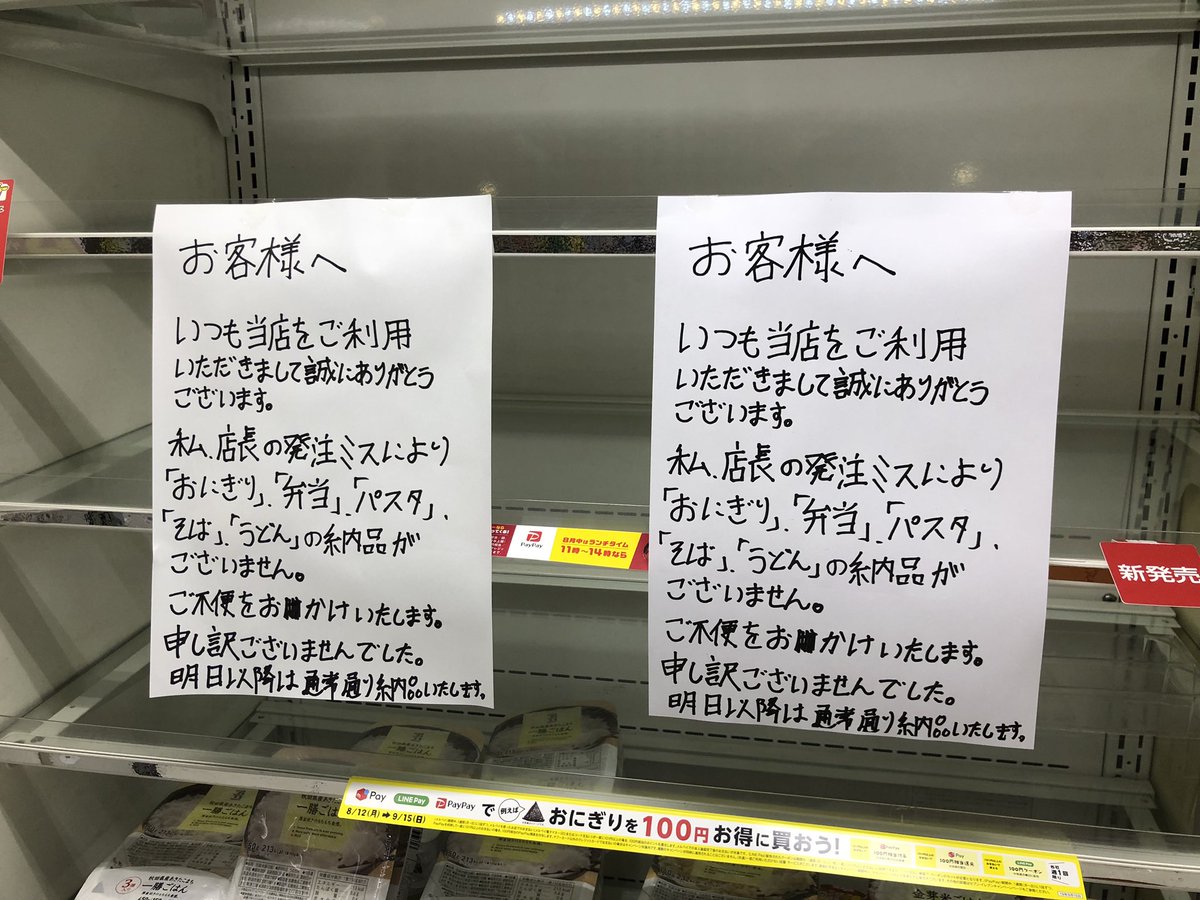 お客様へ
いつも当店をご利用
いただきまして誠にありがとう
ございます。
私、店長の発注ミスにより
「おにぎり」、「弁当」、「パスタ」、
「そば」、「うどん」の納品が
ございません。
ご不便をおかけいたします。
申し訳ございませんでした。
明日以降は通常通り納品いたします。
お客様へ
いつも当店をご利用
いただきまして誠にありがとう
ございます。
私、店長の発注ミスにより
「おにぎり」、「弁当」、「パスタ」、
「そば」、「うどん」の納品が
ございません。
ご不便をおかけいたします。
申し訳ございませんでした。
明日以降は通常通り納品いたします。
PayPay
8月中はランチタイム
11時〜14時なら
新発売
一膳ごはん
一膳ごはん
一膳ごはん
3個
一膳ごはん
Pay LINE Pay PayPay で 例えば おにぎりを100円お得に買おう!
8/12(月)➡9/15(日)